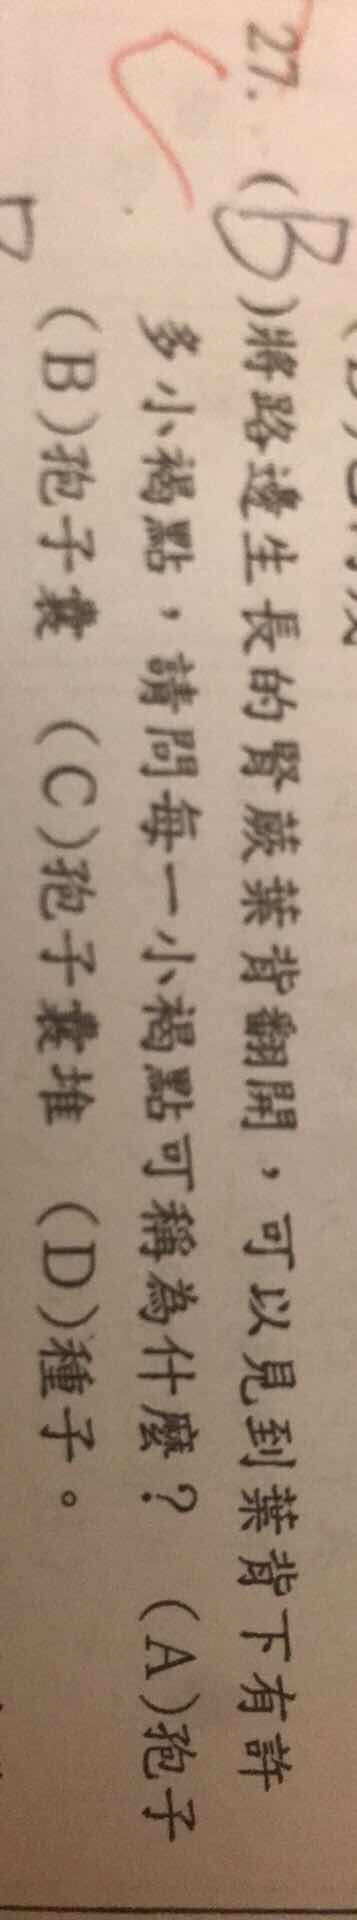 27. (B)將路邊生長的腎蕨葉背翻開，可以見到葉背下有許
多小褐點，請問每一小褐點可稱為什麼？ (A)孢子
(B)孢子囊 (C)孢子囊堆 (D)種子。